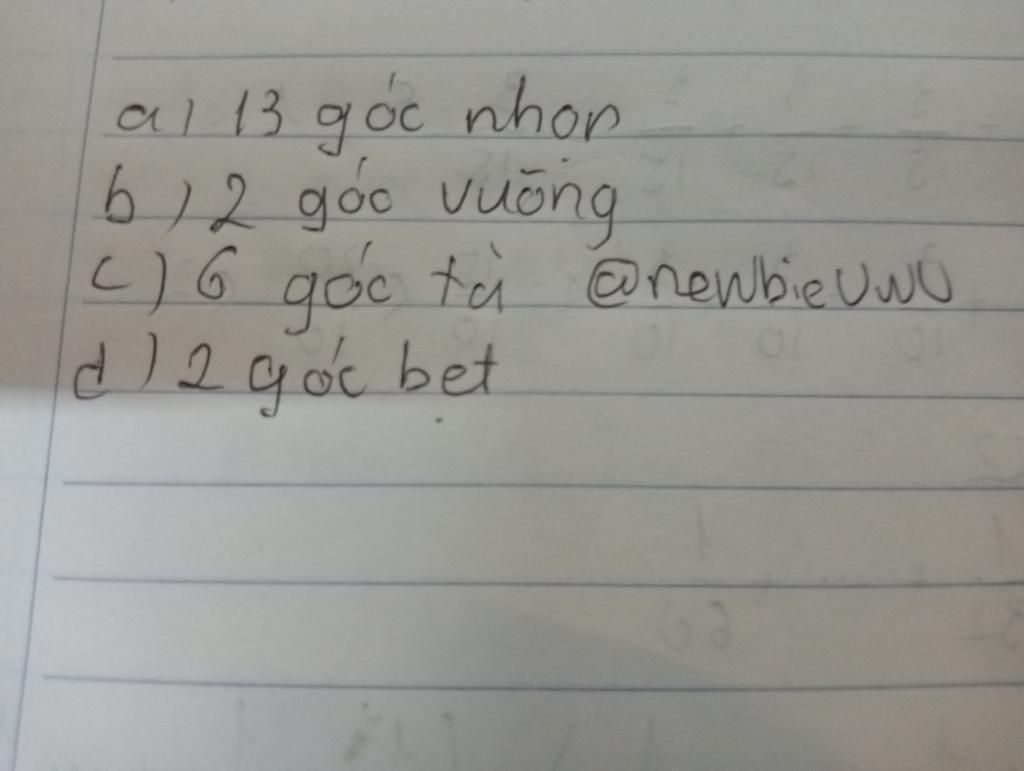 a) 13 góc nhọn
b) 2 góc vuông
c) 6 góc tù @newbieUwU
d) 2 góc bẹt